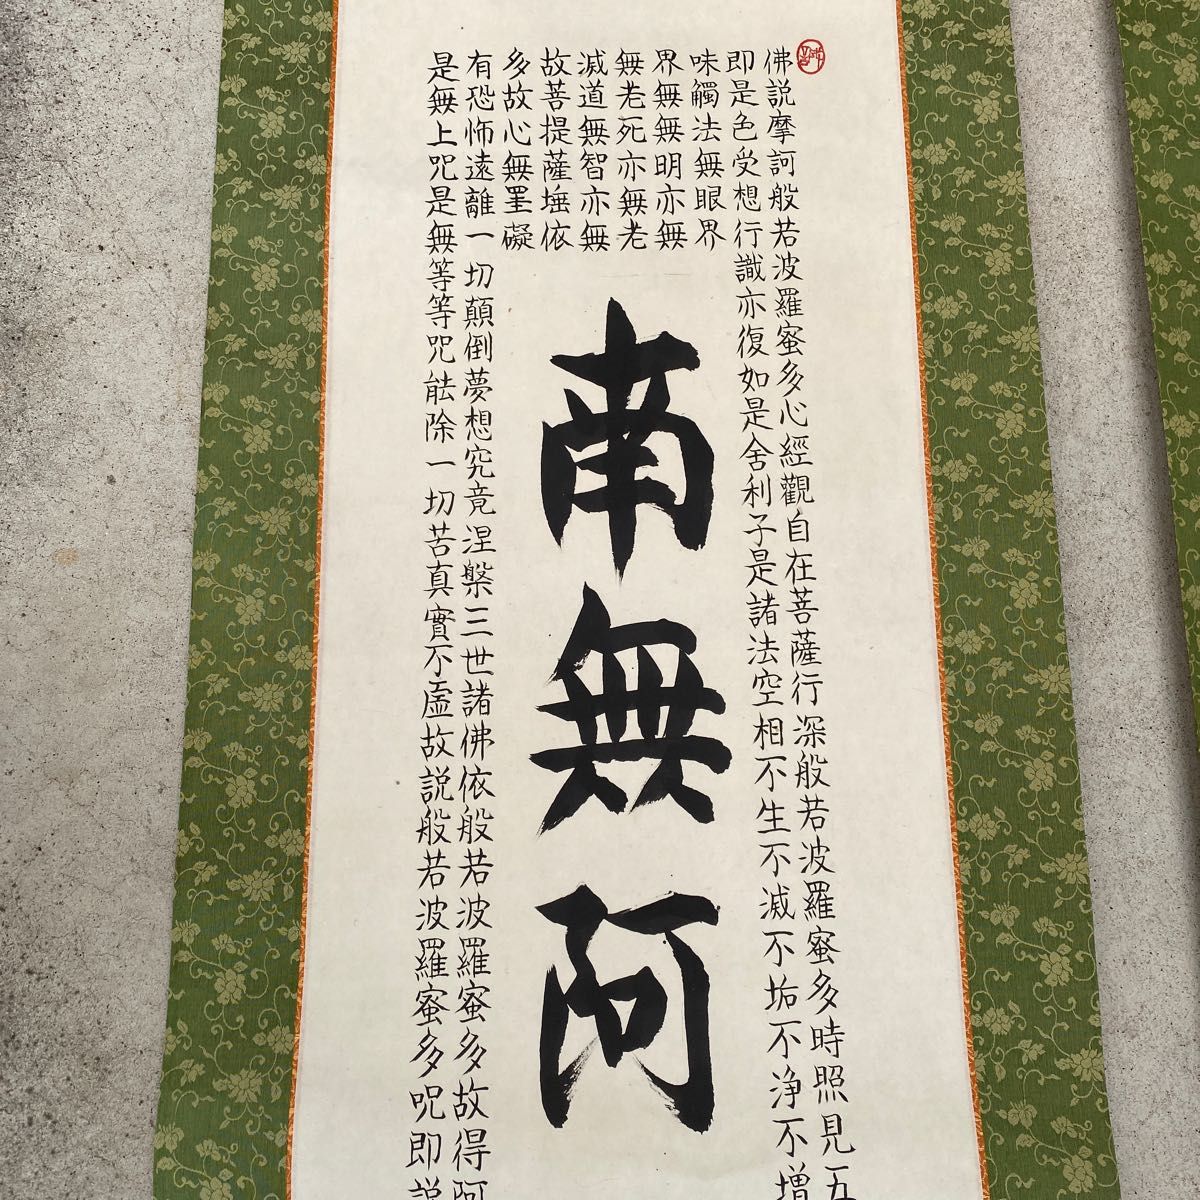 佛説摩訶般若波羅蜜多心經觀自在菩薩行深般若波羅蜜多時照見五
即是色受想行識亦復如是舍利子是諸法空相不生不滅不垢不浄不増
味觸法無眼界
界無無明亦無
無老死亦無老
滅道無智亦無
故菩提薩埵依
多故心無罣礙
南無阿
有恐怖遠離一切顛倒夢想究竟涅槃三世諸佛依般若波羅蜜多故得阿
是無上呪是無等等呪能除一切苦真實不虚故説般若波羅蜜多呪即説